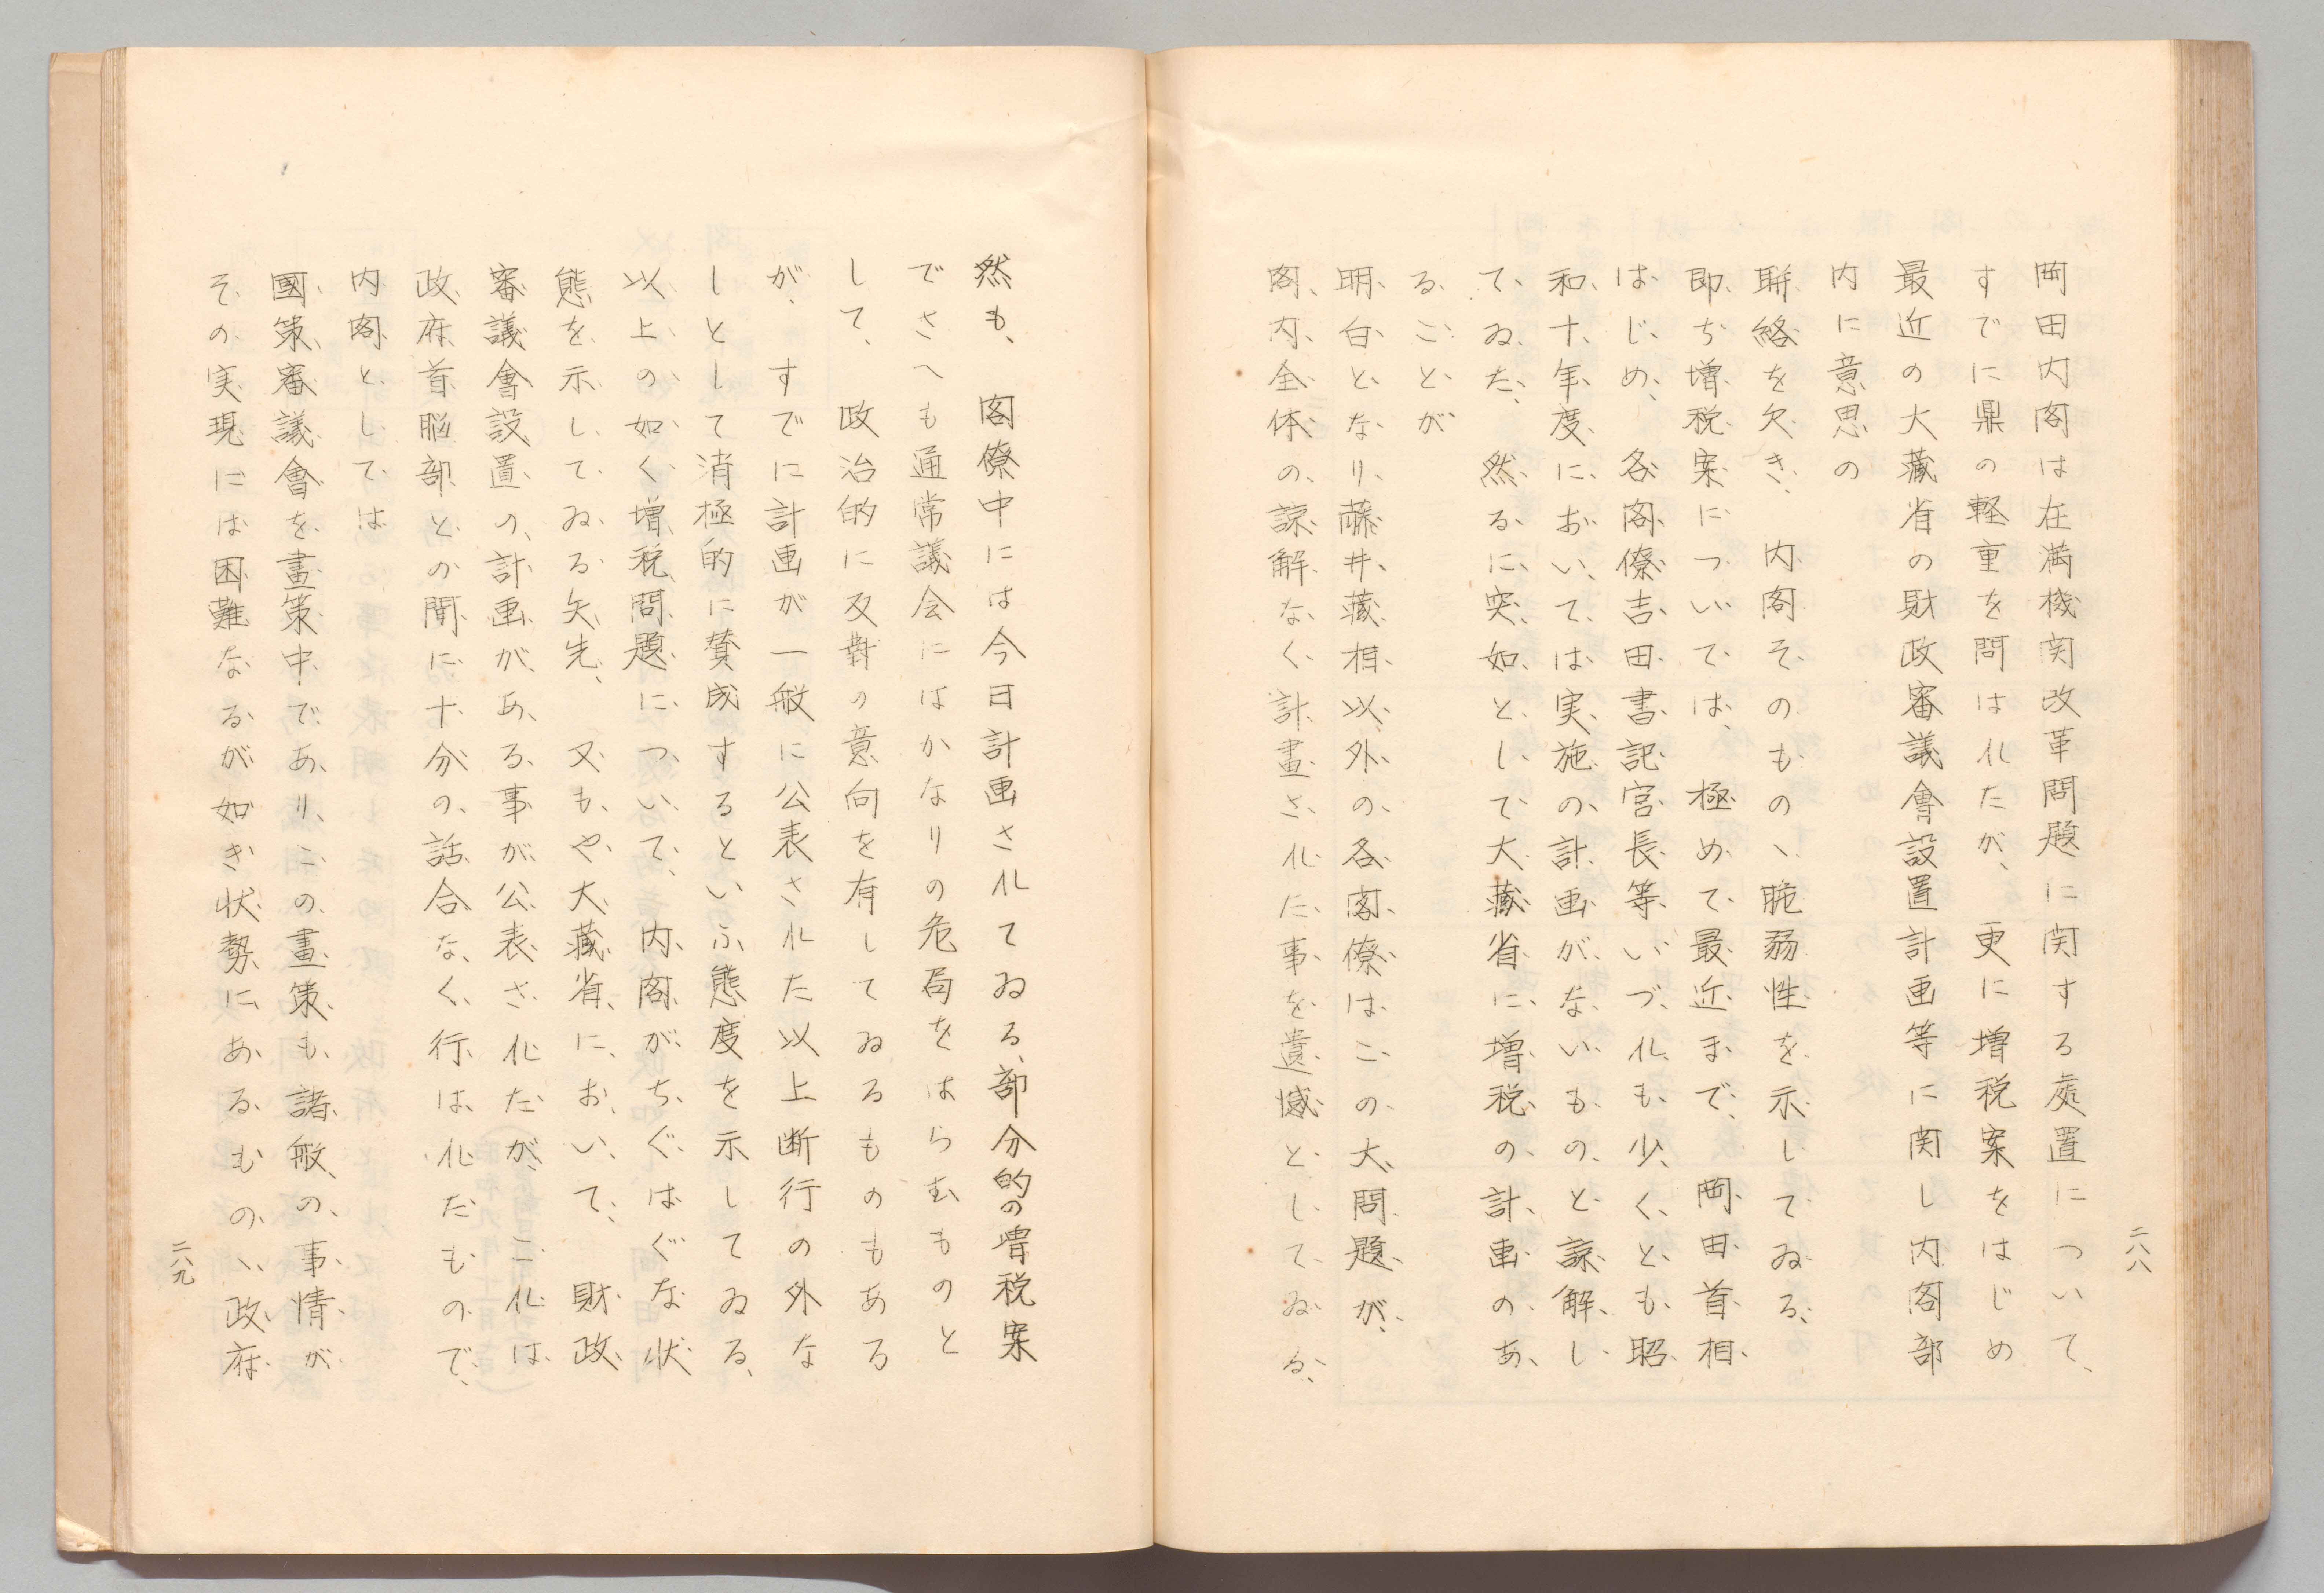 二八八
岡田内閣は在満機関改革問題に関する処置について、
すでに鼎の軽重を問はれたが、更に増税案をはじめ
最近の大藏省の財政審議會設置計画等に関し内閣部
内に意思の
聯絡を欠き、内閣そのものゝ脆弱性を示してゐる、
即ち増税案については、極めて最近まで、岡田首相
はじめ、各閣僚吉田書記官長等いづれも少くとも昭
和十年度においては実施の計画がないものと諒解し
てゐた、然るに突如として大藏省に増税の計画のあ
ることが
明白となり藤井藏相以外の各閣僚はこの大問題が、
閣内全体の諒解なく計畫された事を遺憾としてゐる、
然も、閣僚中には今日計画されてゐる部分的の増税案
でさへも通常議会にはかなりの危局をはらむものと
して、政治的に反對の意向を有してゐるものもある
が、すでに計画が一般に公表された以上断行の外な
しとして消極的に賛成するといふ態度を示してゐる、
以上の如く増税問題について、内閣がちぐはぐな状
態を示してゐる矢先、又もや大藏省において、財政
審議會設置の計画がある事が公表されたが、これは
政府首脳部との間に十分の話合なく行はれたもので、
内閣としては
國策審議會を畫策中であり、この畫策も諸般の事情が
その実現には困難なるが如き状勢にあるものゝ、政府
二八九